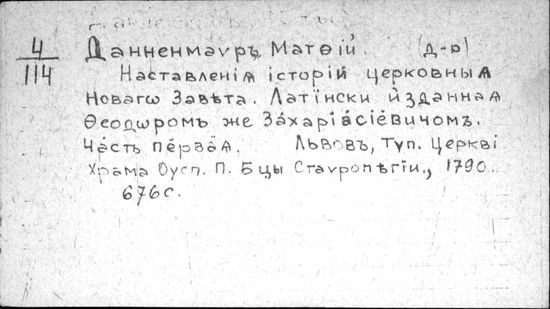 4
114
Данненмаѵръ Матѳій. (д-р)
Наставленія історій церковныя
Новагω Завѣта. Латїнски и́зданная
Ѳеодωромъ же За́харіа́сіе́вичомъ.
Ча́сть пе́рва́я. Львовъ, Тѵп. Церкві
Храма Оусп. П. Бцы Ставропѣгіи., 1790.
676с.